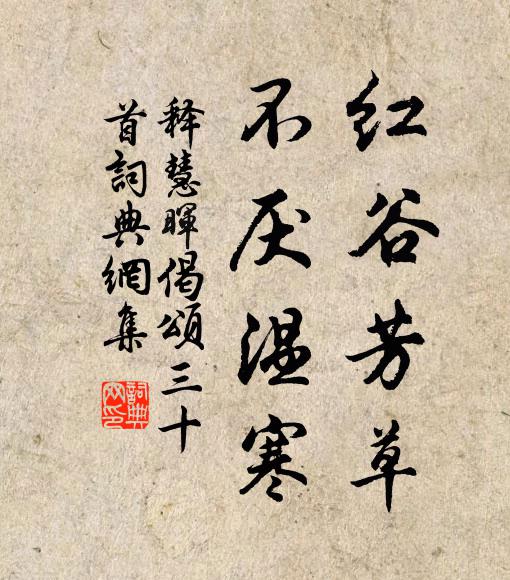 红谷芳草
不厌温寒
释慧晖偈颂三十
首词典網集
詞典网印